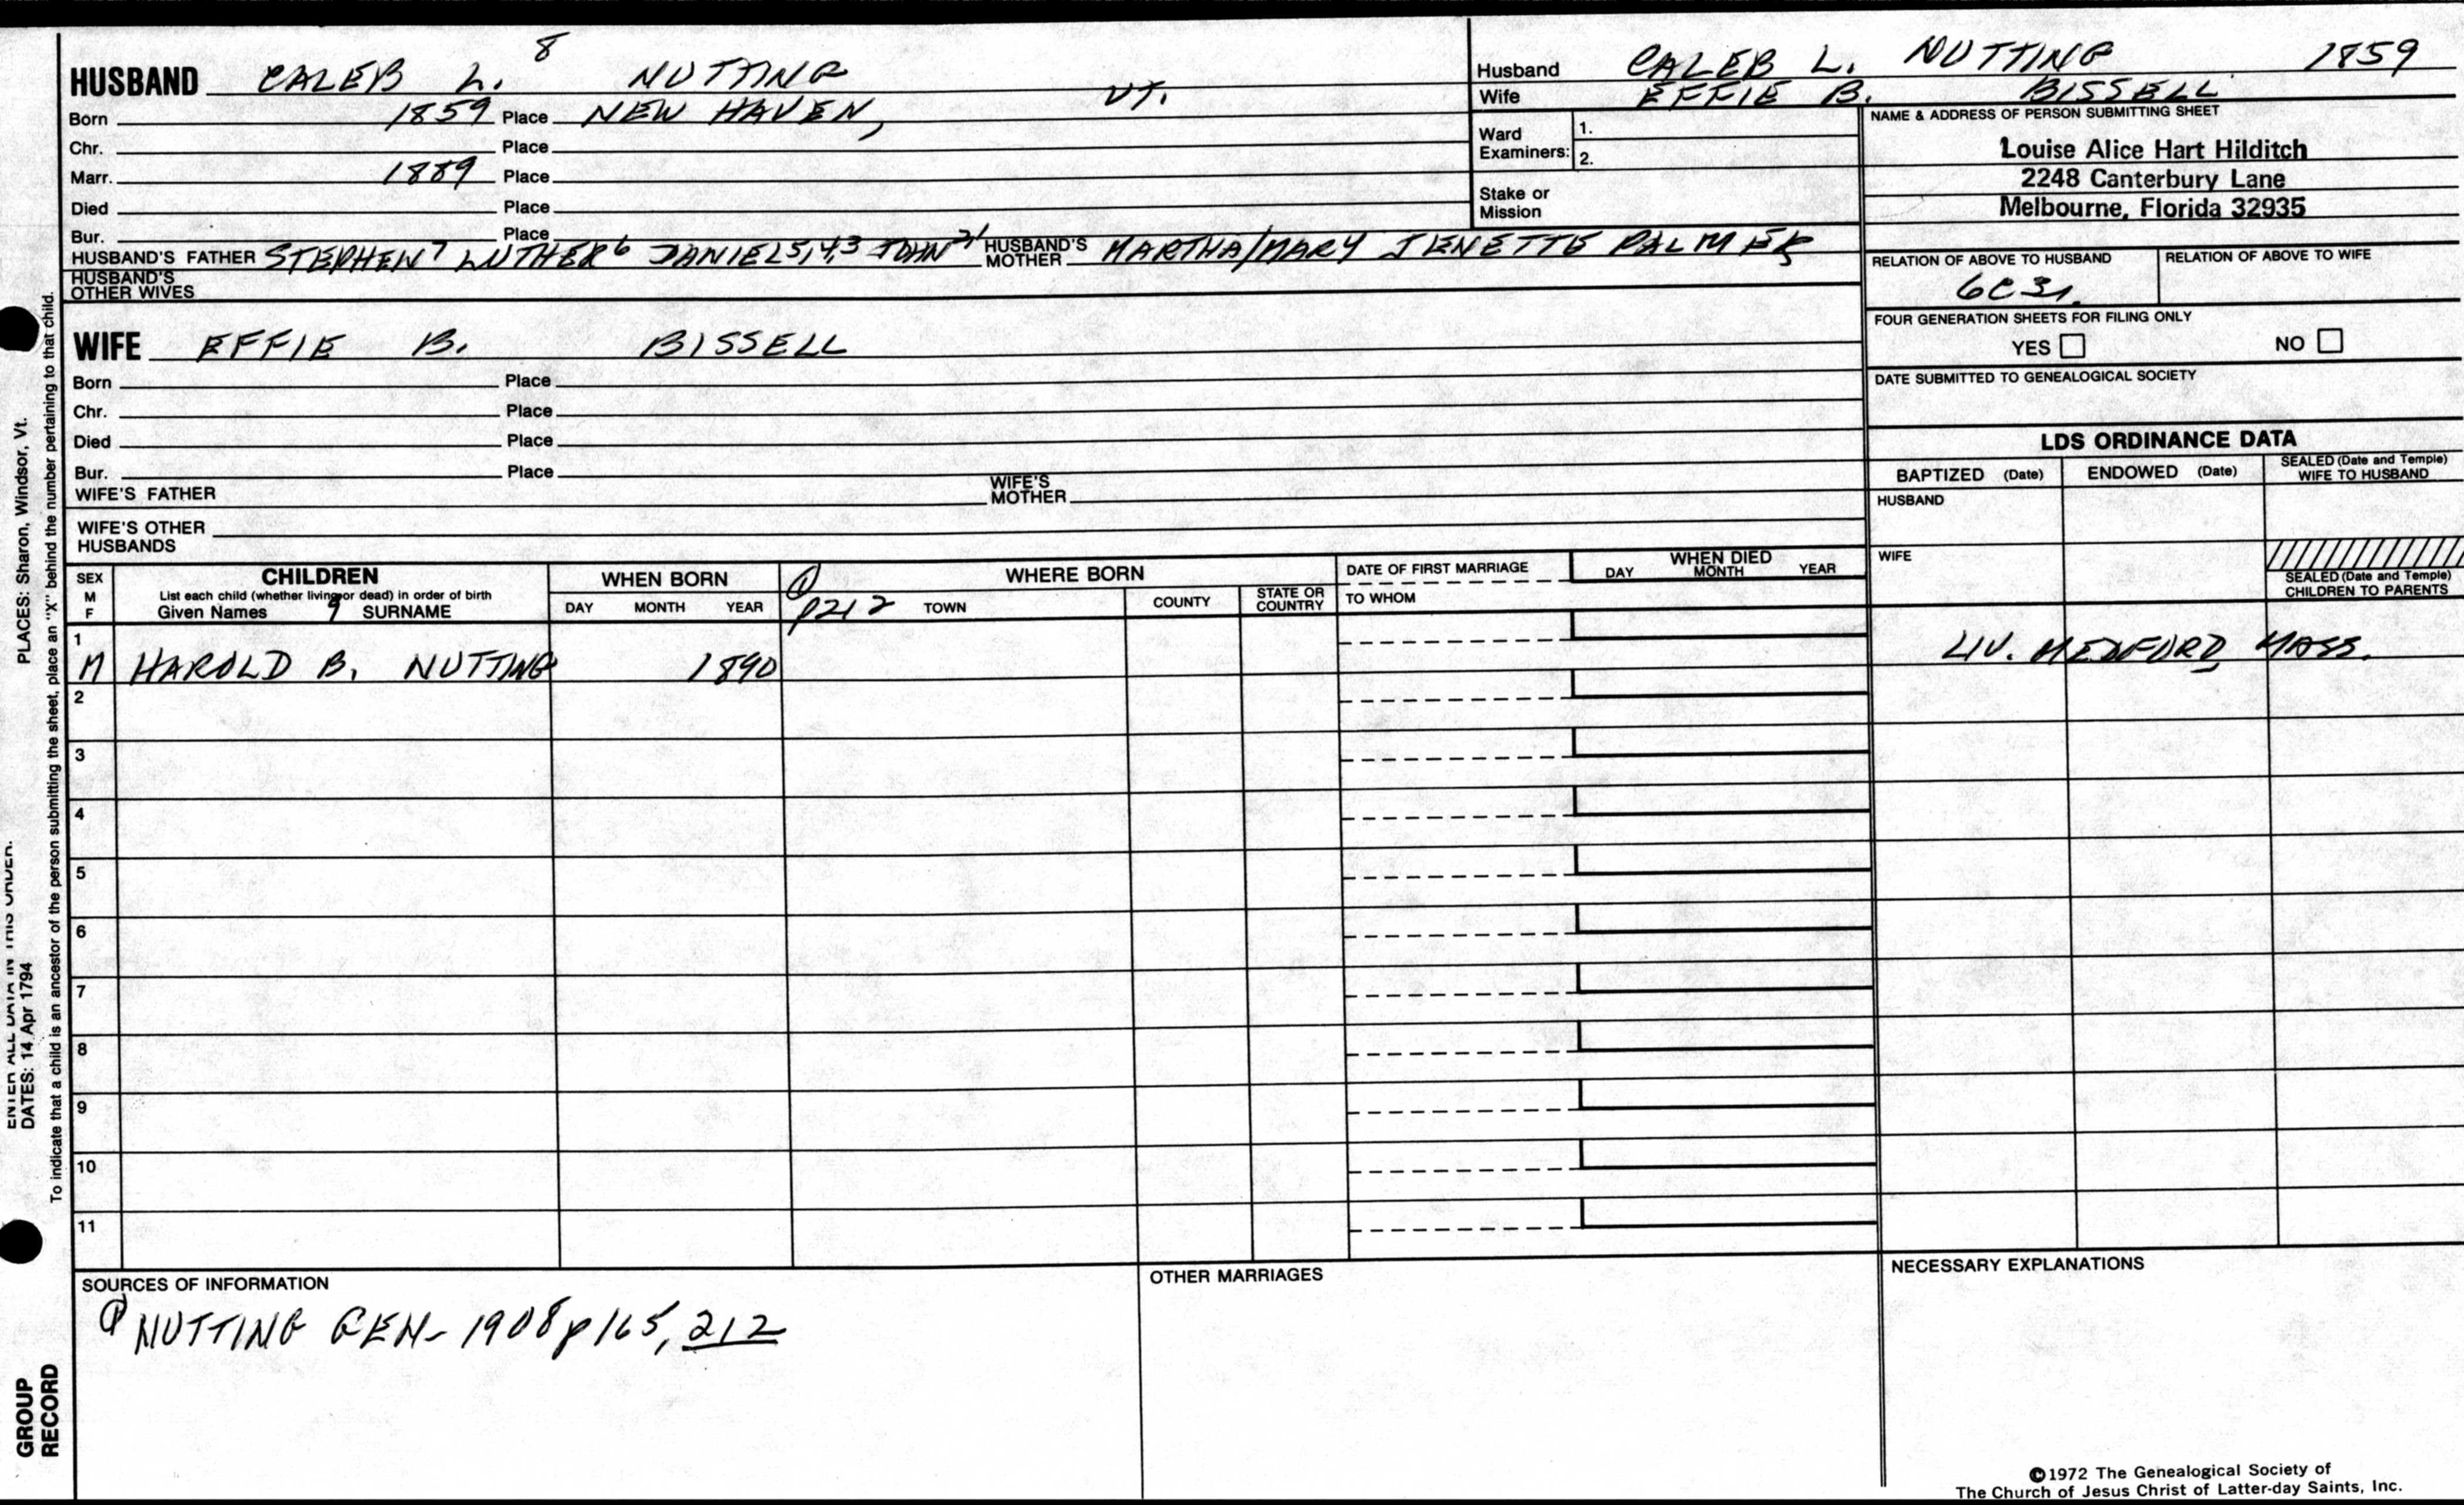 HUSBAND CALEB L. 8 NUTTING
Born 1859 Place NEW HAVEN, VT.
Chr. Place
Marr. 1889 Place
Died Place
Bur. Place
HUSBAND'S FATHER STEPHEN 7 LUTHER 6 DANIEL 5,4,3 JOHN 2,1 HUSBAND'S MOTHER MARTHA/MARY JENETTE PALMER
HUSBAND'S OTHER WIVES
Husband CALEB L. NUTTING 1859
Wife EFFIE B. BISSELL
Ward Examiners: 1.
2.
Stake or Mission
NAME & ADDRESS OF PERSON SUBMITTING SHEET
Louise Alice Hart Hilditch
2248 Canterbury Lane
Melbourne, Florida 32935
RELATION OF ABOVE TO HUSBAND RELATION OF ABOVE TO WIFE
6C3r.
FOUR GENERATION SHEETS FOR FILING ONLY
YES NO
DATE SUBMITTED TO GENEALOGICAL SOCIETY
WIFE EFFIE B. BISSELL
Born Place
Chr. Place
Died Place
Bur. Place
WIFE'S FATHER WIFE'S MOTHER
WIFE'S OTHER HUSBANDS
LDS ORDINANCE DATA
BAPTIZED (Date) ENDOWED (Date) SEALED (Date and Temple) WIFE TO HUSBAND
HUSBAND
WIFE
SEALED (Date and Temple) CHILDREN TO PARENTS
SEX M F
CHILDREN
List each child (whether living or dead) in order of birth
Given Names 9 SURNAME
WHEN BORN
DAY MONTH YEAR
① WHERE BORN
p212 TOWN COUNTY STATE OR COUNTRY
DATE OF FIRST MARRIAGE
TO WHOM
WHEN DIED
DAY MONTH YEAR
1
M HAROLD B. NUTTING 1890 LIV. MEDFORD, MASS.
2
3
4
5
6
7
8
9
10
11
SOURCES OF INFORMATION
① NUTTING GEN- 1908 p165, 212
OTHER MARRIAGES
NECESSARY EXPLANATIONS
©1972 The Genealogical Society of
The Church of Jesus Christ of Latter-day Saints, Inc.
ENTER ALL DATA IN THIS ORDER.
DATES: 14 Apr 1794
PLACES: Sharon, Windsor, Vt.
To indicate that a child is an ancestor of the person submitting the sheet, place an "X" behind the number pertaining to that child.
GROUP
RECORD